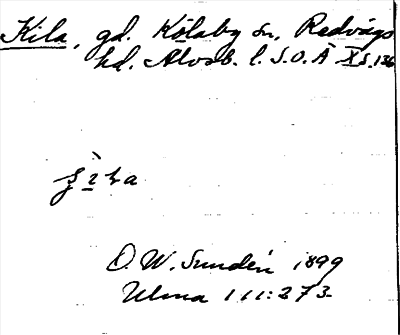 Kila, gd. Kölaby sn, Redvägs
hd. Älvsb. l. S.O.Ä X s. 136
D. W. Sundén 1899
Ulma 111:273